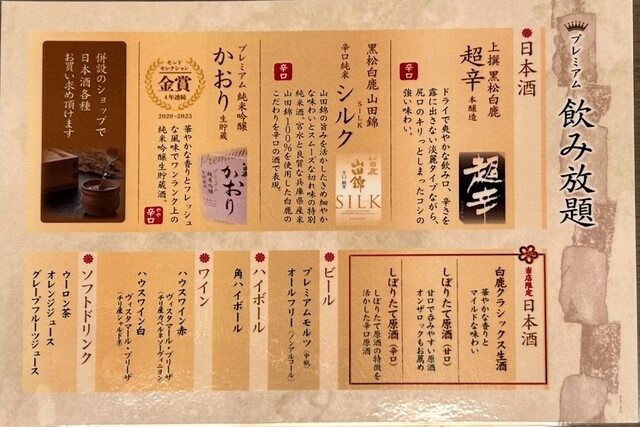 プレミアム 飲み放題
日本酒
上撰 黒松白鹿
超辛 本醸造
辛口
ドライで爽やかな飲み口、辛さを
露に出さない淡麗タイプながら、
尻口のキリっとしまったコシの
強い味わい。
超辛
黒松白鹿 山田錦
辛口純米 シルク
SILK
辛口
山田錦の旨みを活かしたきめ細やか
な味わいとスムーズな切れ味の特別
純米酒。宮水と良質な兵庫県産米
山田錦100%を使用した白鹿の
こだわりを辛口の酒で表現。
山田錦
SILK
プレミアム 純米吟醸
かおり 生貯蔵
モンド
セレクション
金賞
4年連続
2020-2023
華やかな香りとフレッシュ
な風味でワンランク上の
純米吟醸生貯蔵酒。
やや辛口
純米吟醸
かおり
併設のショップで
日本酒各種
お買い求め頂けます
当店限定 日本酒
白鹿クラシックス生酒
華やかな香りと
マイルドな味わい
しぼりたて原酒(甘口)
甘口で呑みやすい原酒
オンザロックもお薦め
しぼりたて原酒(辛口)
しぼりたて原酒の特徴を
活かした辛口原酒
ビール
プレミアムモルツ(中瓶)
オールフリー(ノンアルコール)
ハイボール
角ハイボール
ワイン
ハウスワイン赤
ヴィスタマール・ブリーザ
(チリ産カベルネソーヴィニヨン)
ハウスワイン白
ヴィスタマール・ブリーザ
(チリ産シャルドネ)
ソフトドリンク
ウーロン茶
オレンジジュース
グレープフルーツジュース